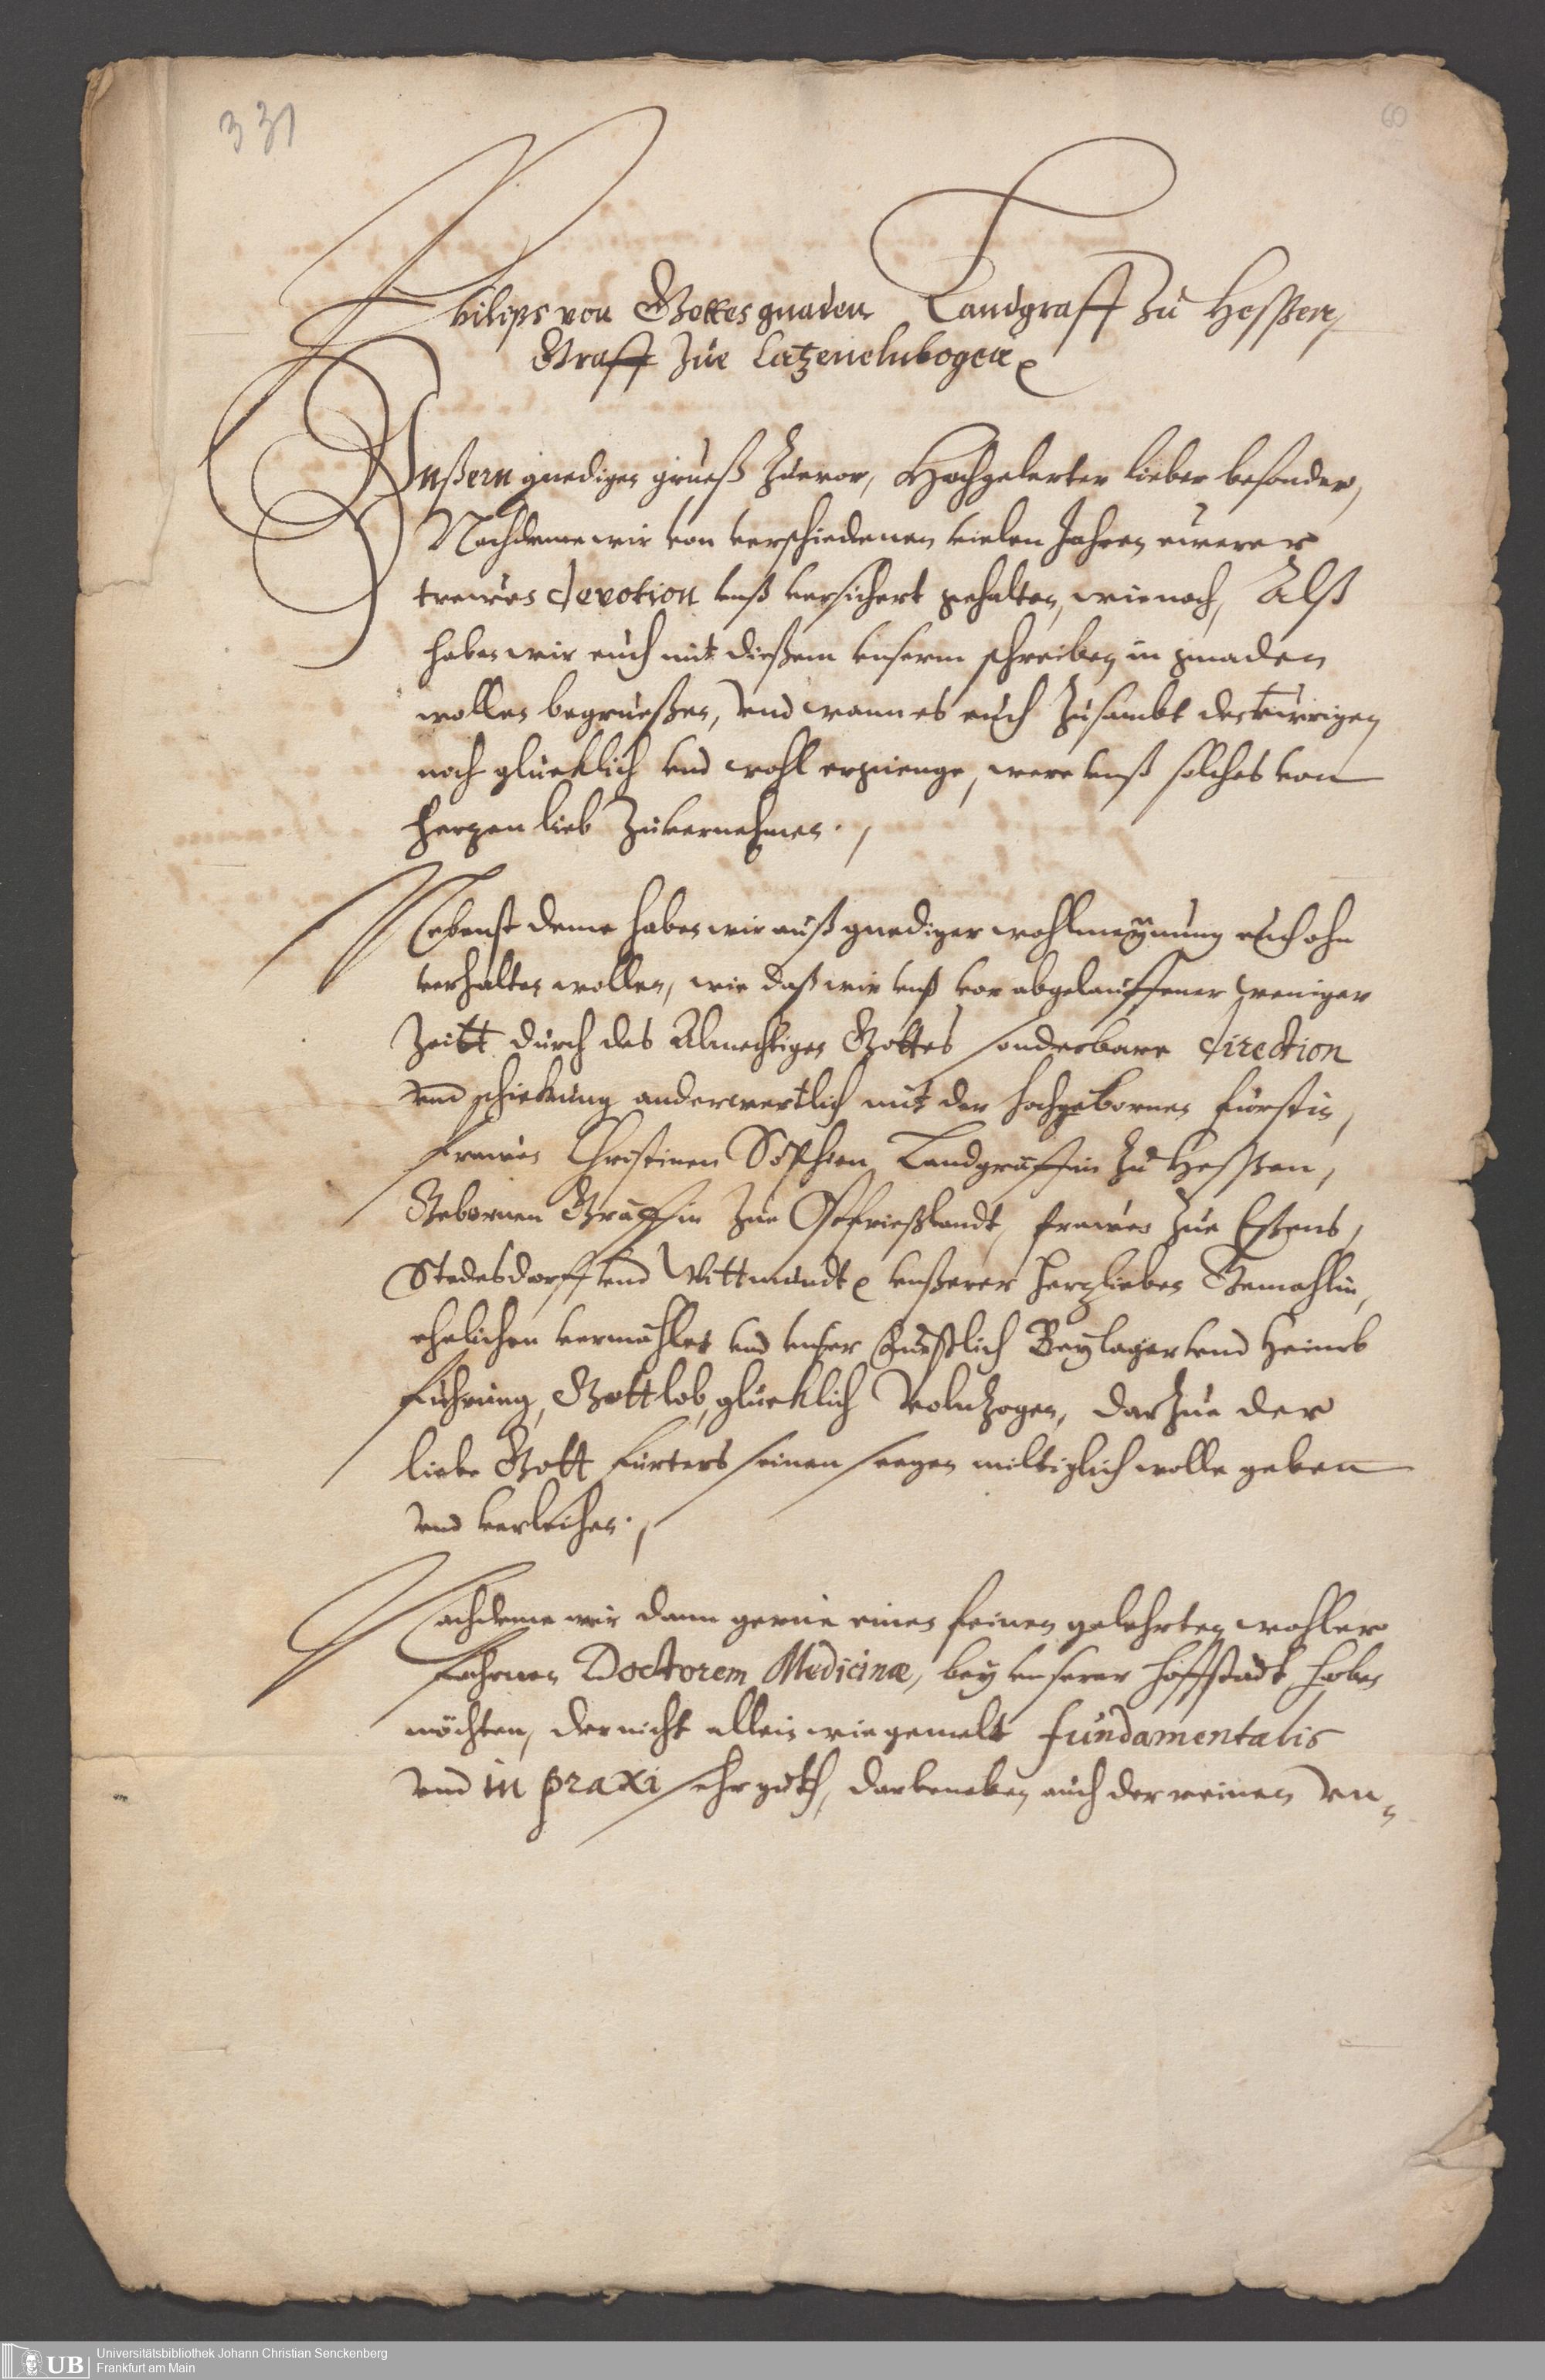 331
60
Philips von Gottes gnaden Landgraff zu Hessen,
Graff zue Catzenelnbogen
Unßern gnedigen grueß zuvor, Hochgelerter lieber besonder,
Nachdeme wir von verschiedenen vielen Jahren ewerer
trewen devotion unß versichert gehalten, wie noch, Alß
haben wir euch mit dießem unserm schreiben in gnaden
wollen begrueßen, und wann es euch zusambt der ewrigen
noch glucklich und wohl ergienge, were unß solches von
hertzen lieb zuvernehmen.,
Nebenst deme haben wir auß gnediger wohlmeynung euch ohn
verhalten wollen, wie daß wir unß vor abgelauffener weniger
Zeitt durch des Almechtigen Gottes sonderbare direction
und schickung anderwertlich mit der hochgebornen furstin,
frawen Christinen Sophien Landgraffin zu Hessen,
Gebornen Graffin zue Ostfrießlandt, frawen zue Essens,
Stedesdorff und Wittmundt unßerer hertzlieben Gemahlin,
ehelichen vermahlet und unser furstlich Beylager und Heimb
fuhrung, Gott lob, glucklich volnzogen, darzue der
liebe Gott furters seinen seegen miltiglich wolle geben
und verleihen.,
Nachdeme wir dann gerne einen feinen gelehrten wohler
fahrnen Doctorem Medicinæ, bey unserer hoffstadt haben
möchten, der nicht allein wie gemelt fundamentalis
und in praxi sehr guth, darbeneben auch der reinen un=
Universitätsbibliothek Johann Christian Senckenberg
UB
Frankfurt am Main